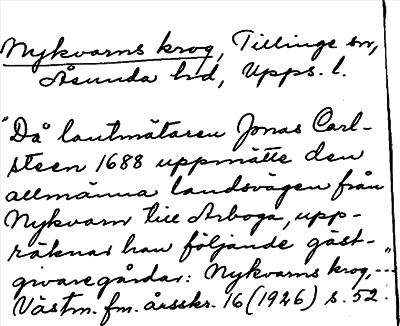 Nykvarns krog, Tillinge sn,
Åsunda hd, Upps. l.
"Då lantmätaren Jonas Carl-
steen 1688 uppmätte den
allmänna landsvägen från
Nykvarn till Arboga, upp-
räknar han följande gäst-
givaregårdar: Nykvarns krog, --"
Västm. fm. årsskr. 16 (1926) s. 52.